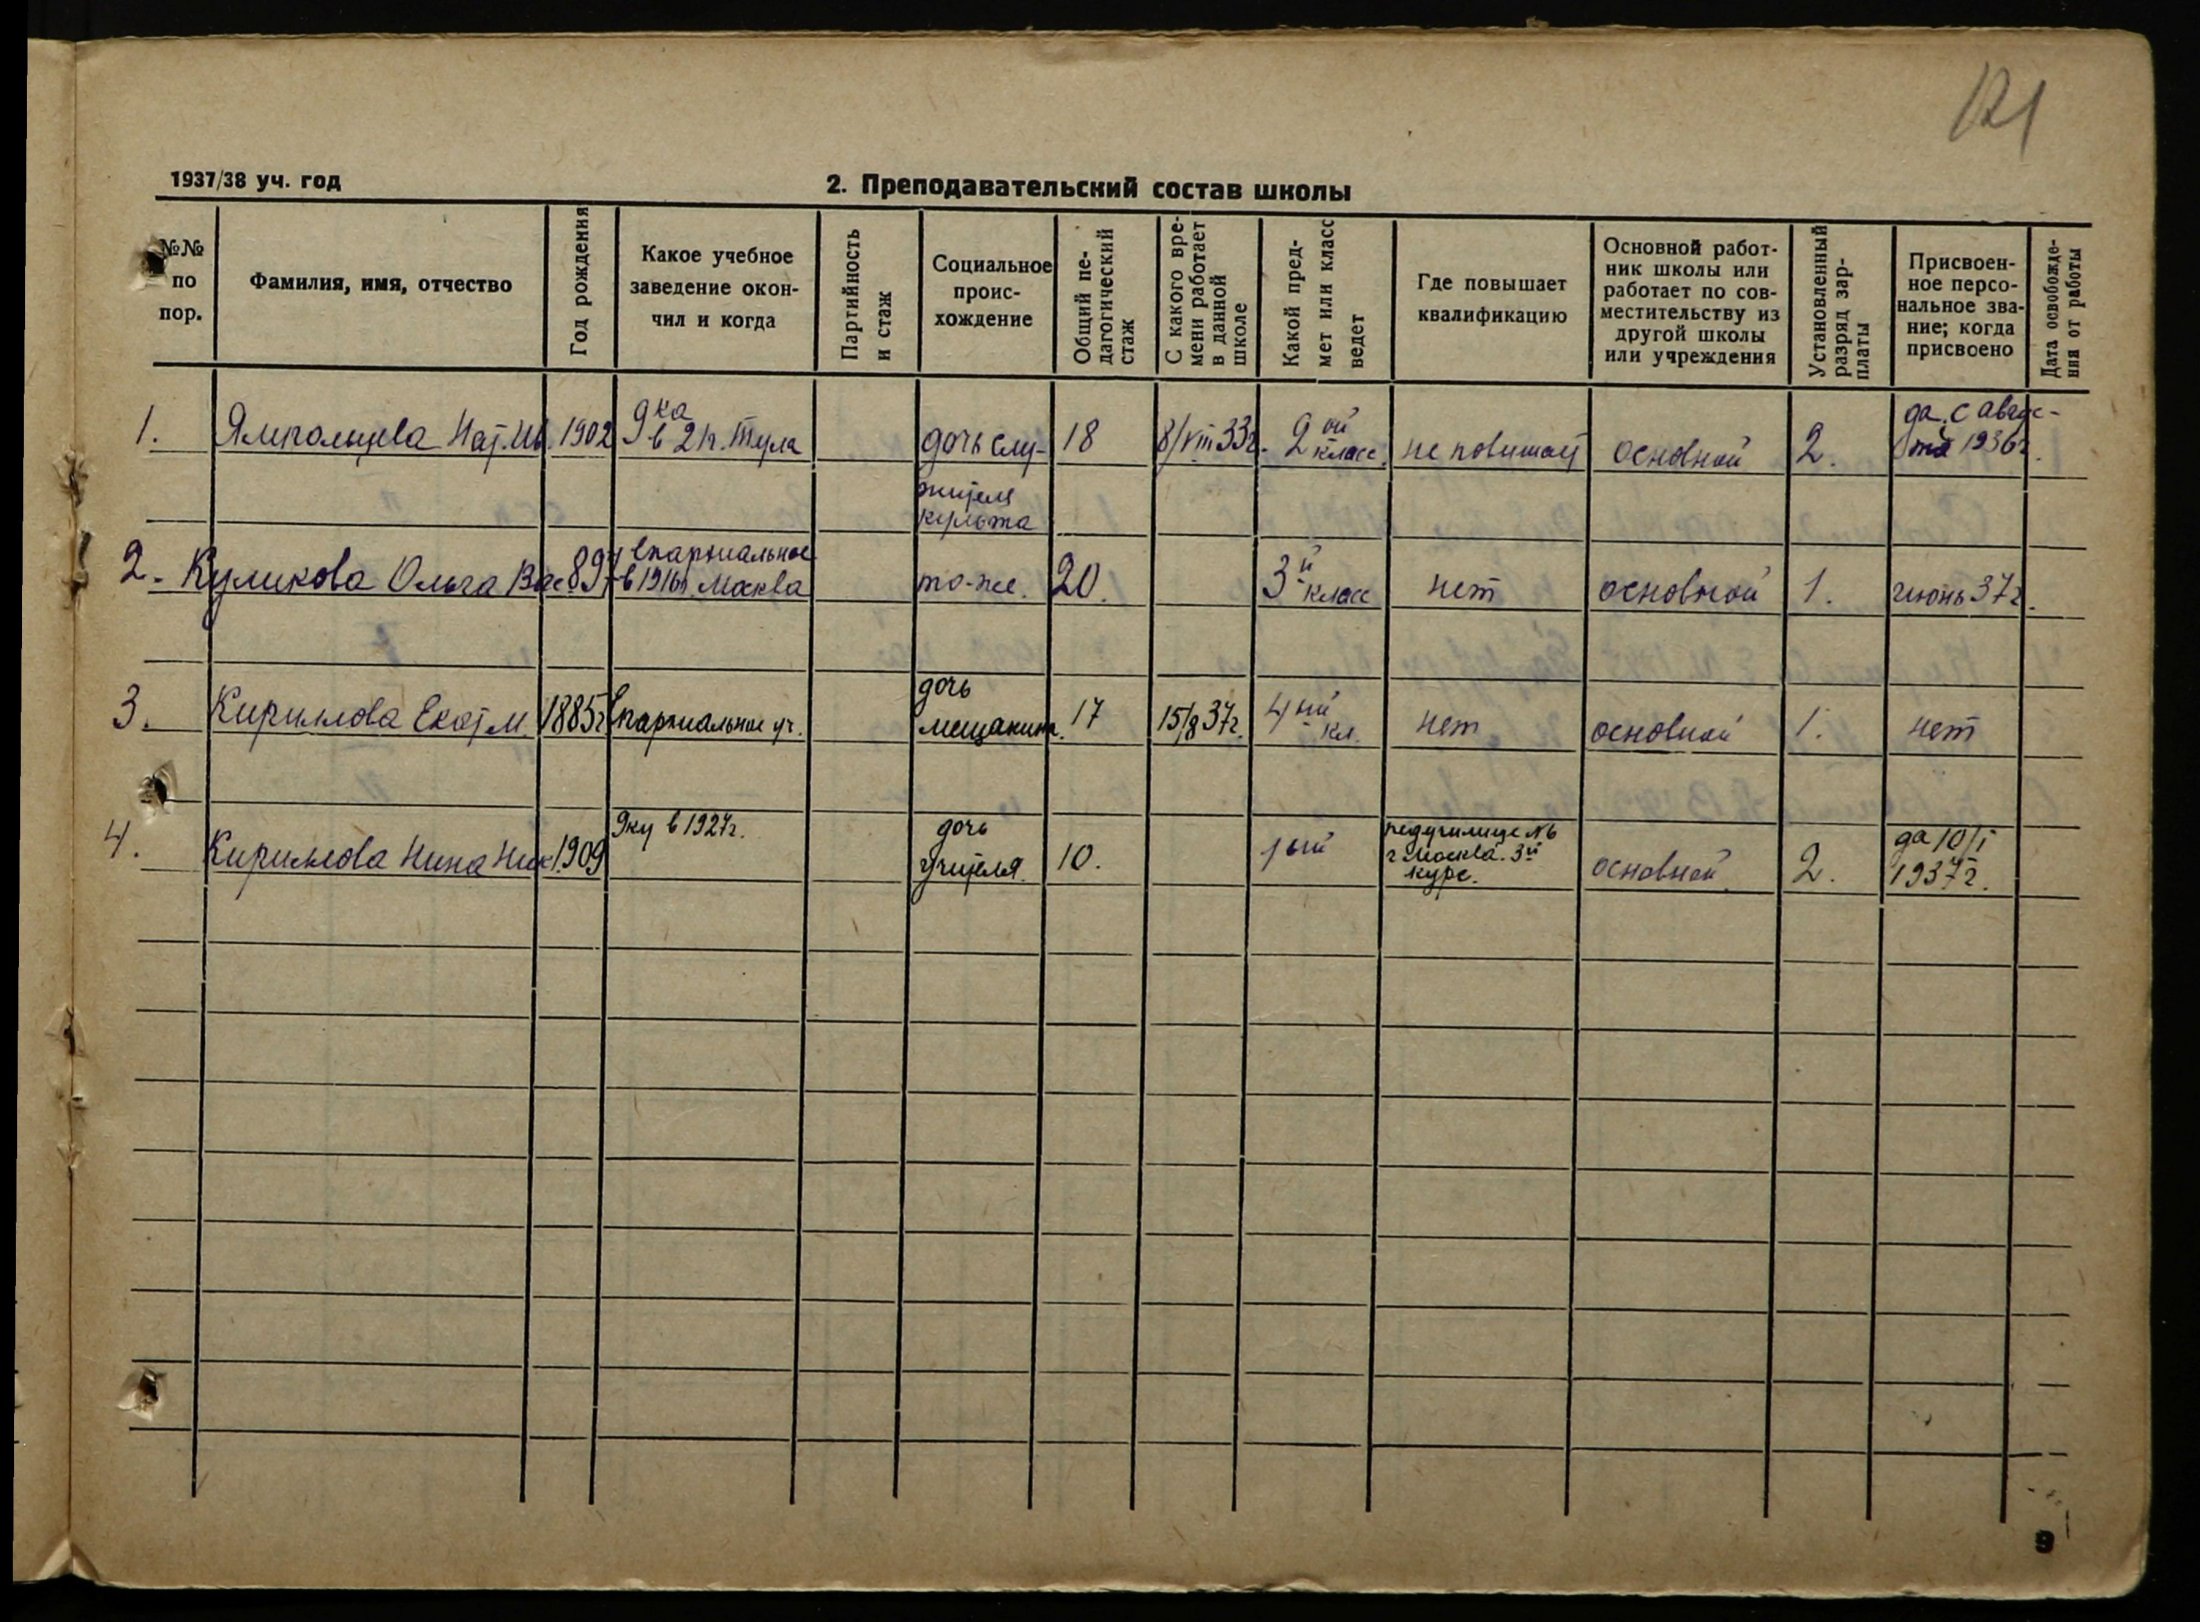 121
1937/38 уч. год
2. Преподавательский состав школы
№№ по пор.
Фамилия, имя, отчество
Год рождения
Какое учебное заведение окон-чил и когда
Партийность и стаж
Социальное проис-хождение
Общий пе-дагогический стаж
С какого вре-мени работает в данной школе
Какой пред-мет или класс ведет
Где повышает квалификацию
Основной работ-ник школы или работает по сов-местительству из другой школы или учреждения
Установленный разряд зар-платы
Присвоен-ное персо-нальное зва-ние; когда присвоено
Дата освобожде-ния от работы
1. Ямпольцева Нат. Ив. 1902 9ка в 21г. Тула дочь слу- 18 8/VIII 33г. 2ой класс. не повышает основной 2. да. с авгус-та 1936г.
жителя
культа
2. Куликова Ольга Вас 897 Епархиальное в 1916г. Москва то-же. 20. 3й класс нет основной 1. июнь 37г.
3. Кириллова Екат. М. 1885г Епархиальное уч. дочь мещанина. 17 15/8 37г. 4ый кл. нет основной 1. нет
4. Кириллова Нина Ник. 1909 9ку в 1927г. дочь учителя. 10. 1ый педучилище №6 г Москва. 3й курс. основной 2. да 10/I 1937г.
9